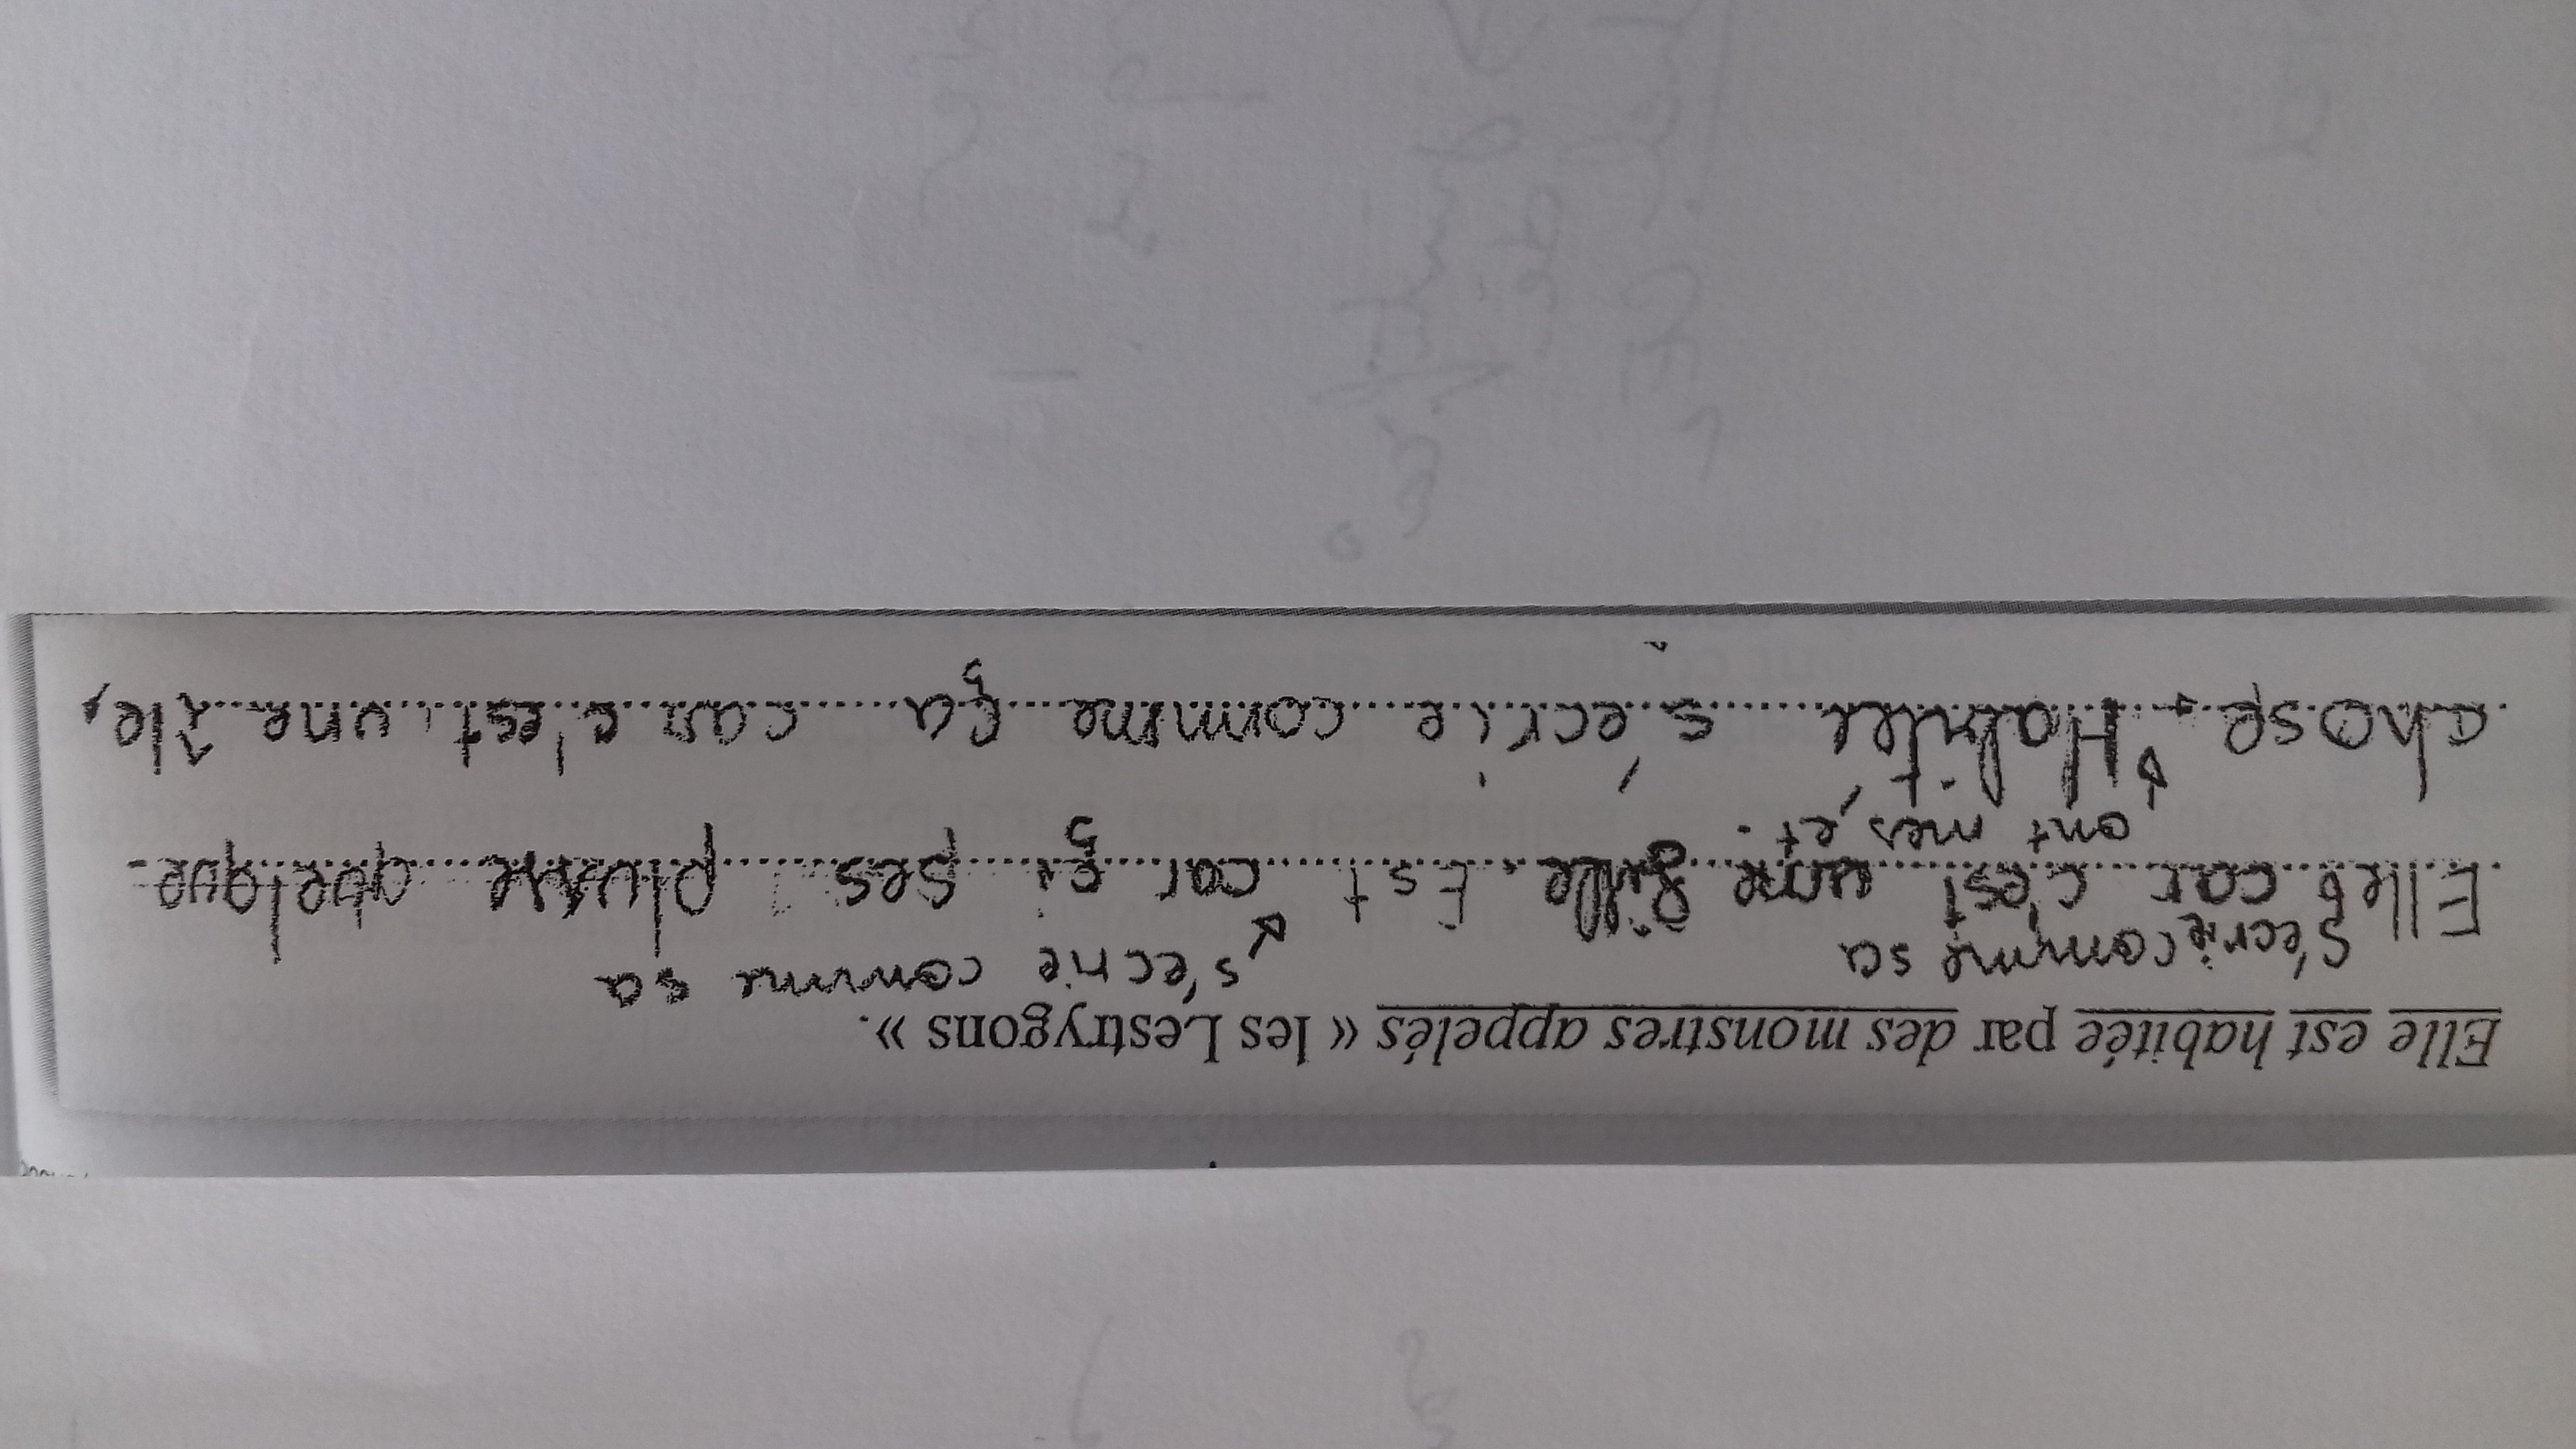 Elle est habitée par des monstres appelés « les Lestrygons ».
s'écrie comme sa s'écrie comme sa
Elle car c'est une fille. Est car çi ses plusse quelque-
ont mes et.
chose. Habitée s'écrie comme ça car c'est une île,